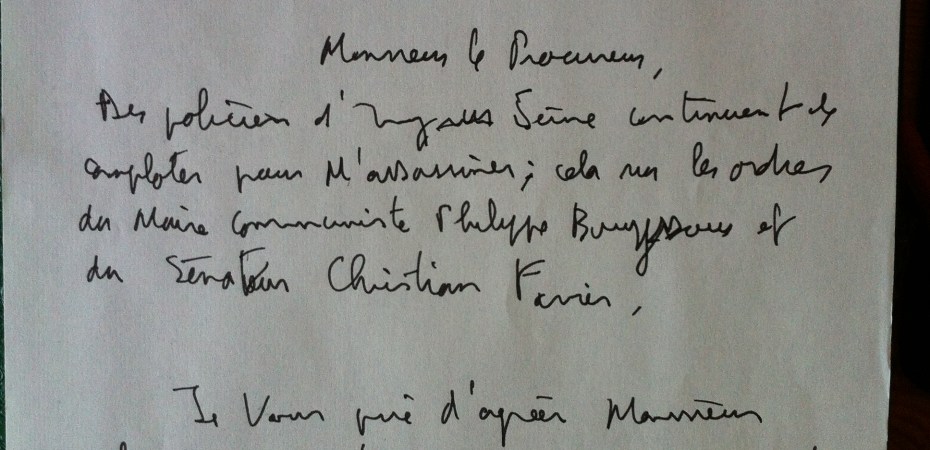 Monsieur le Procureur,
Des policiers d'Ivry sur Seine continuent de
comploter pour M'assassiner; cela sur les ordres
du Maire Communiste Philippe Bouyssous et
du Sénateur Christian Favier,
Je Vous prie d'agréer Monsieur